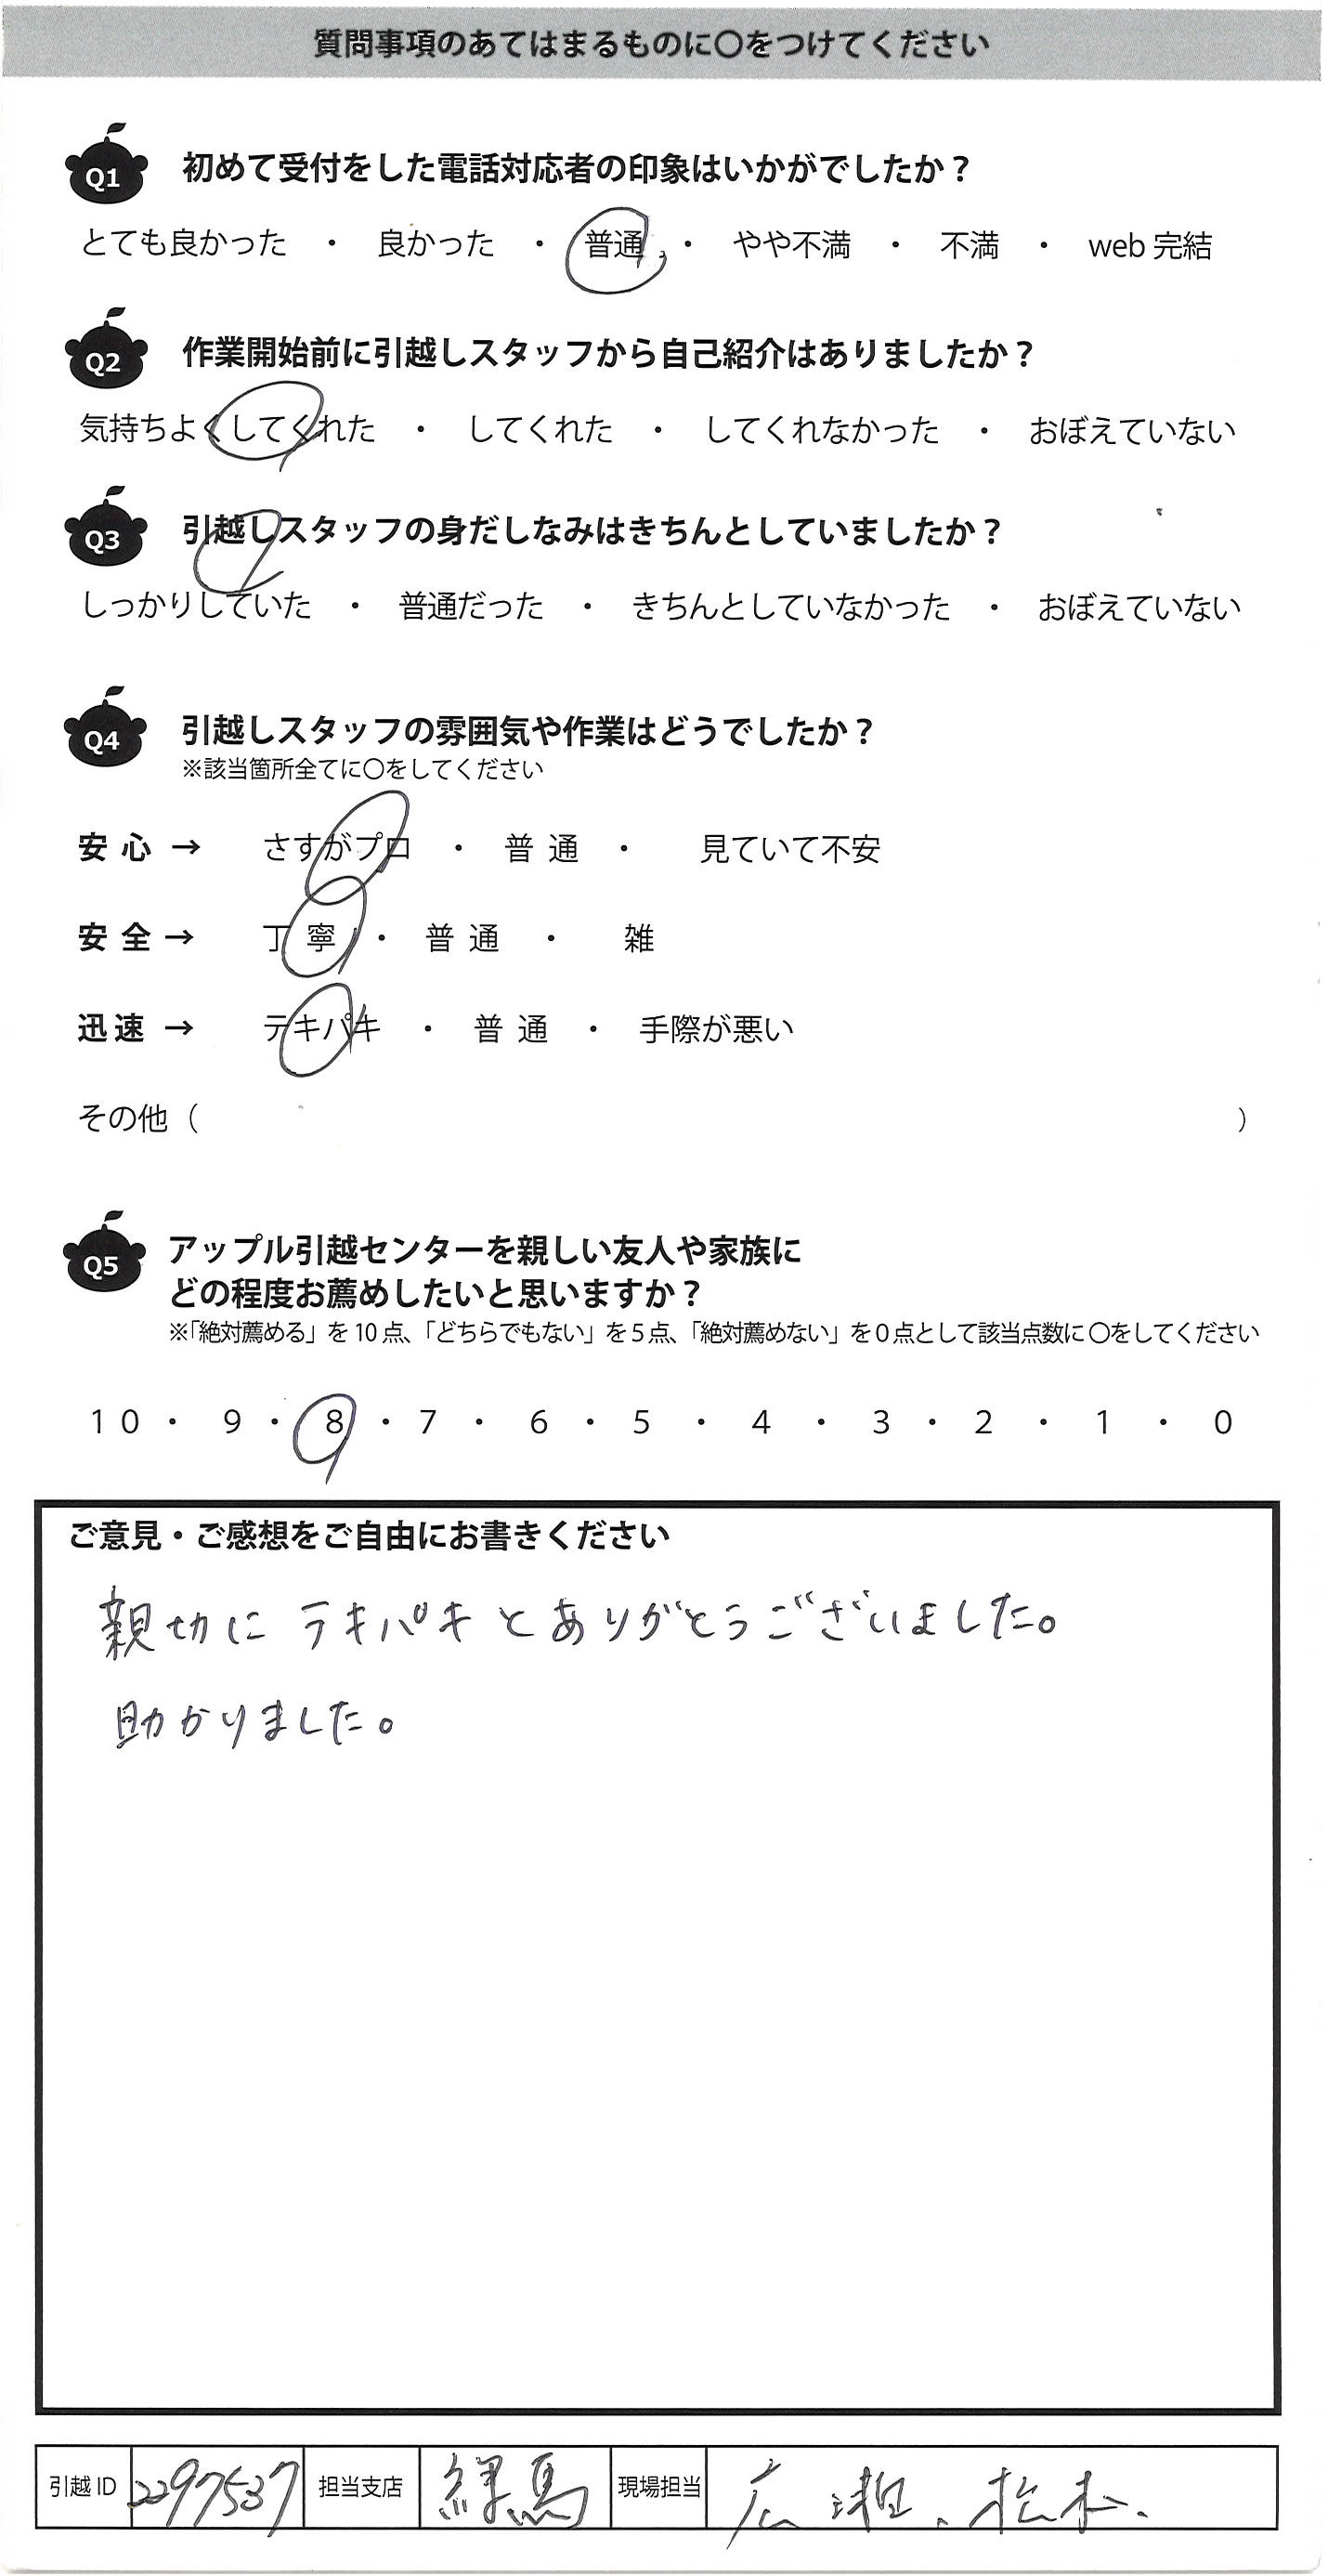 質問事項のあてはまるものに〇をつけてください
Q1 初めて受付をした電話対応者の印象はいかがでしたか？
とても良かった ・ 良かった ・ 普通 ・ やや不満 ・ 不満 ・ web 完結
Q2 作業開始前に引越しスタッフから自己紹介はありましたか？
気持ちよくしてくれた ・ してくれた ・ してくれなかった ・ おぼえていない
Q3 引越しスタッフの身だしなみはきちんとしていましたか？
しっかりしていた ・ 普通だった ・ きちんとしていなかった ・ おぼえていない
Q4 引越しスタッフの雰囲気や作業はどうでしたか？
※該当箇所全てに〇をしてください
安心 → さすがプロ ・ 普通 ・ 見ていて不安
安全 → 丁寧 ・ 普通 ・ 雑
迅速 → テキパキ ・ 普通 ・ 手際が悪い
その他（ ）
Q5 アップル引越センターを親しい友人や家族に
どの程度お薦めしたいと思いますか？
※「絶対薦める」を 10 点、「どちらでもない」を 5 点、「絶対薦めない」を 0 点として該当点数に〇をしてください
10 ・ 9 ・ 8 ・ 7 ・ 6 ・ 5 ・ 4 ・ 3 ・ 2 ・ 1 ・ 0
ご意見・ご感想をご自由にお書きください
親切にテキパキとありがとうございました。
助かりました。
引越 ID 2297537 担当支店 練馬 現場担当 広瀬、松本、